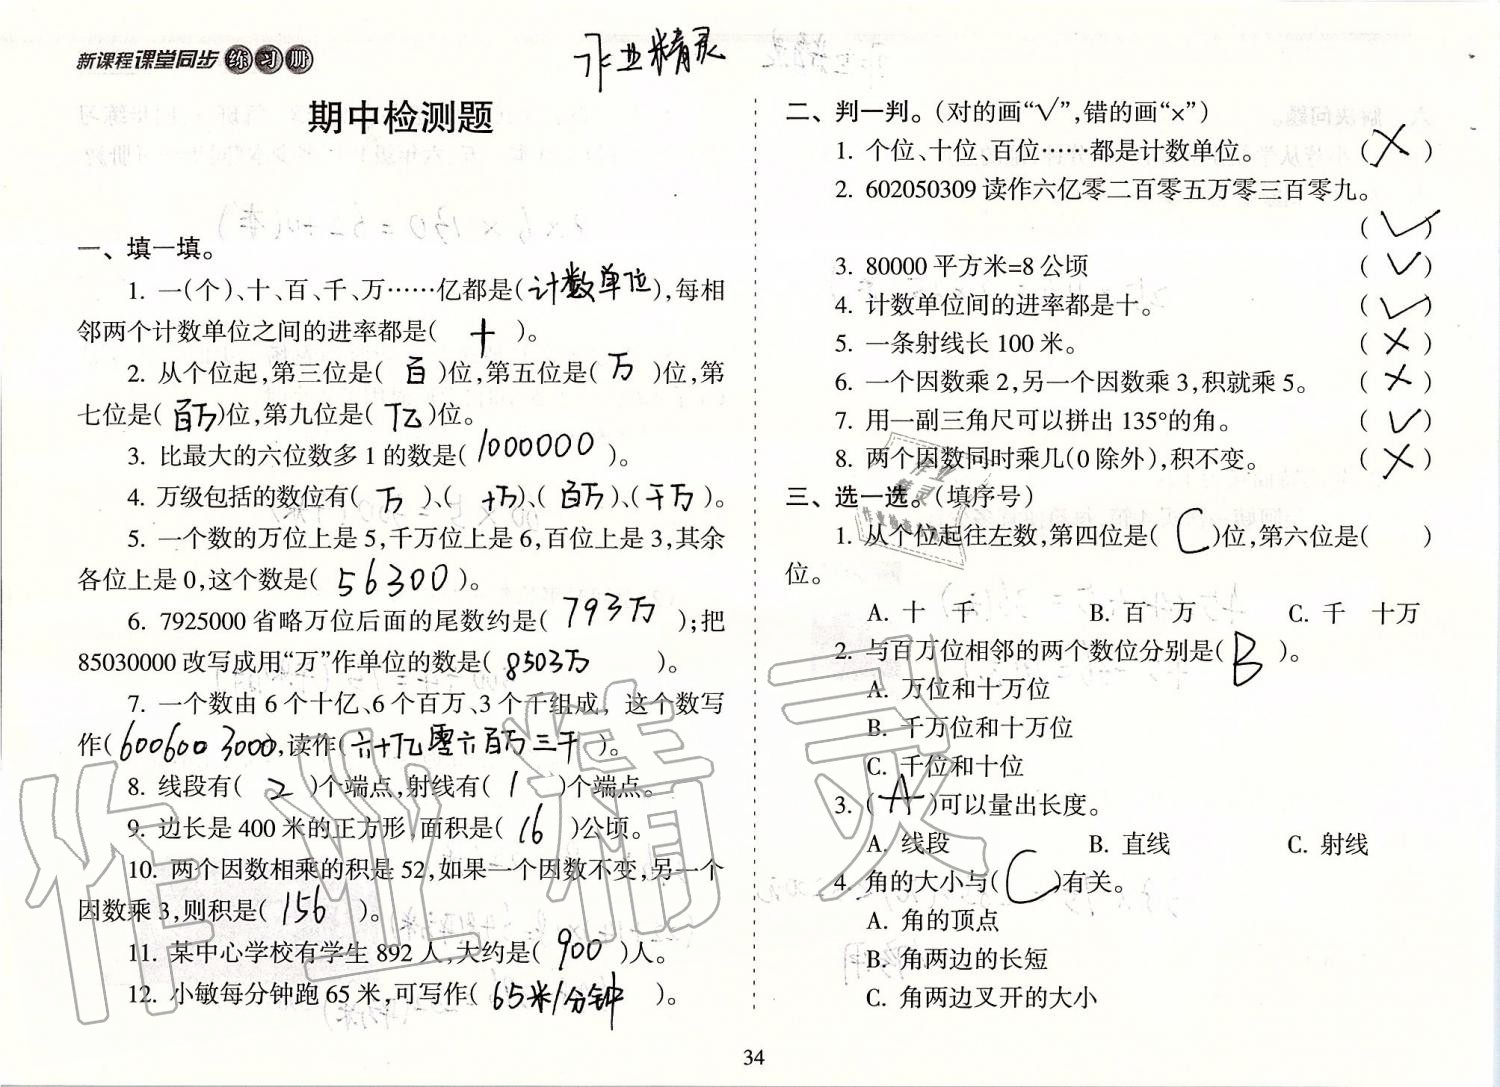 新课程课堂同步练习册
作业精灵
期中检测题
一、填一填。
1. 一(个)、十、百、千、万……亿都是(计数单位),每相
邻两个计数单位之间的进率都是( 十 )。
2. 从个位起,第三位是( 百 )位,第五位是( 万 )位,第
七位是( 百万 )位,第九位是( 亿 )位。
3. 比最大的六位数多1的数是( 1000000 )。
4. 万级包括的数位有( 万 )、( 十万 )、( 百万 )、( 千万 )。
5. 一个数的万位上是5,千万位上是6,百位上是3,其余
各位上是0,这个数是( 56300 )。
6. 7925000省略万位后面的尾数约是( 793万 );把
85030000改写成用“万”作单位的数是( 8503万 )。
7. 一个数由6个十亿、6个百万、3个千组成, 这个数写
作( 6006003000 ),读作( 六十亿零六百万三千 )。
8. 线段有( 2 )个端点,射线有( 1 )个端点。
9. 边长是400米的正方形,面积是( 16 )公顷。
10. 两个因数相乘的积是52,如果一个因数不变,另一个
因数乘3,则积是( 156 )。
11. 某中心学校有学生892人,大约是( 900 )人。
12. 小敏每分钟跑65米,可写作( 65米/分钟 )。
二、判一判。(对的画“√”,错的画“×”)
1. 个位、十位、百位……都是计数单位。 ( × )
2. 602050309读作六亿零二百零五万零三百零九。
( √ )
3. 80000平方米=8公顷 ( √ )
4. 计数单位间的进率都是十。 ( √ )
5. 一条射线长100米。 ( × )
6. 一个因数乘2,另一个因数乘3,积就乘5。 ( × )
7. 用一副三角尺可以拼出135°的角。 ( √ )
8. 两个因数同时乘几(0除外),积不变。 ( × )
三、选一选。(填序号)
1. 从个位起往左数,第四位是( C )位,第六位是( )
位。
A. 十 千 B. 百 万 C. 千 十万
2. 与百万位相邻的两个数位分别是( B )。
A. 万位和十万位
B. 千万位和十万位
C. 千位和十位
3. ( A )可以量出长度。
A. 线段 B. 直线 C. 射线
4. 角的大小与( C )有关。
A. 角的顶点
B. 角两边的长短
C. 角两边叉开的大小
作业精灵
34